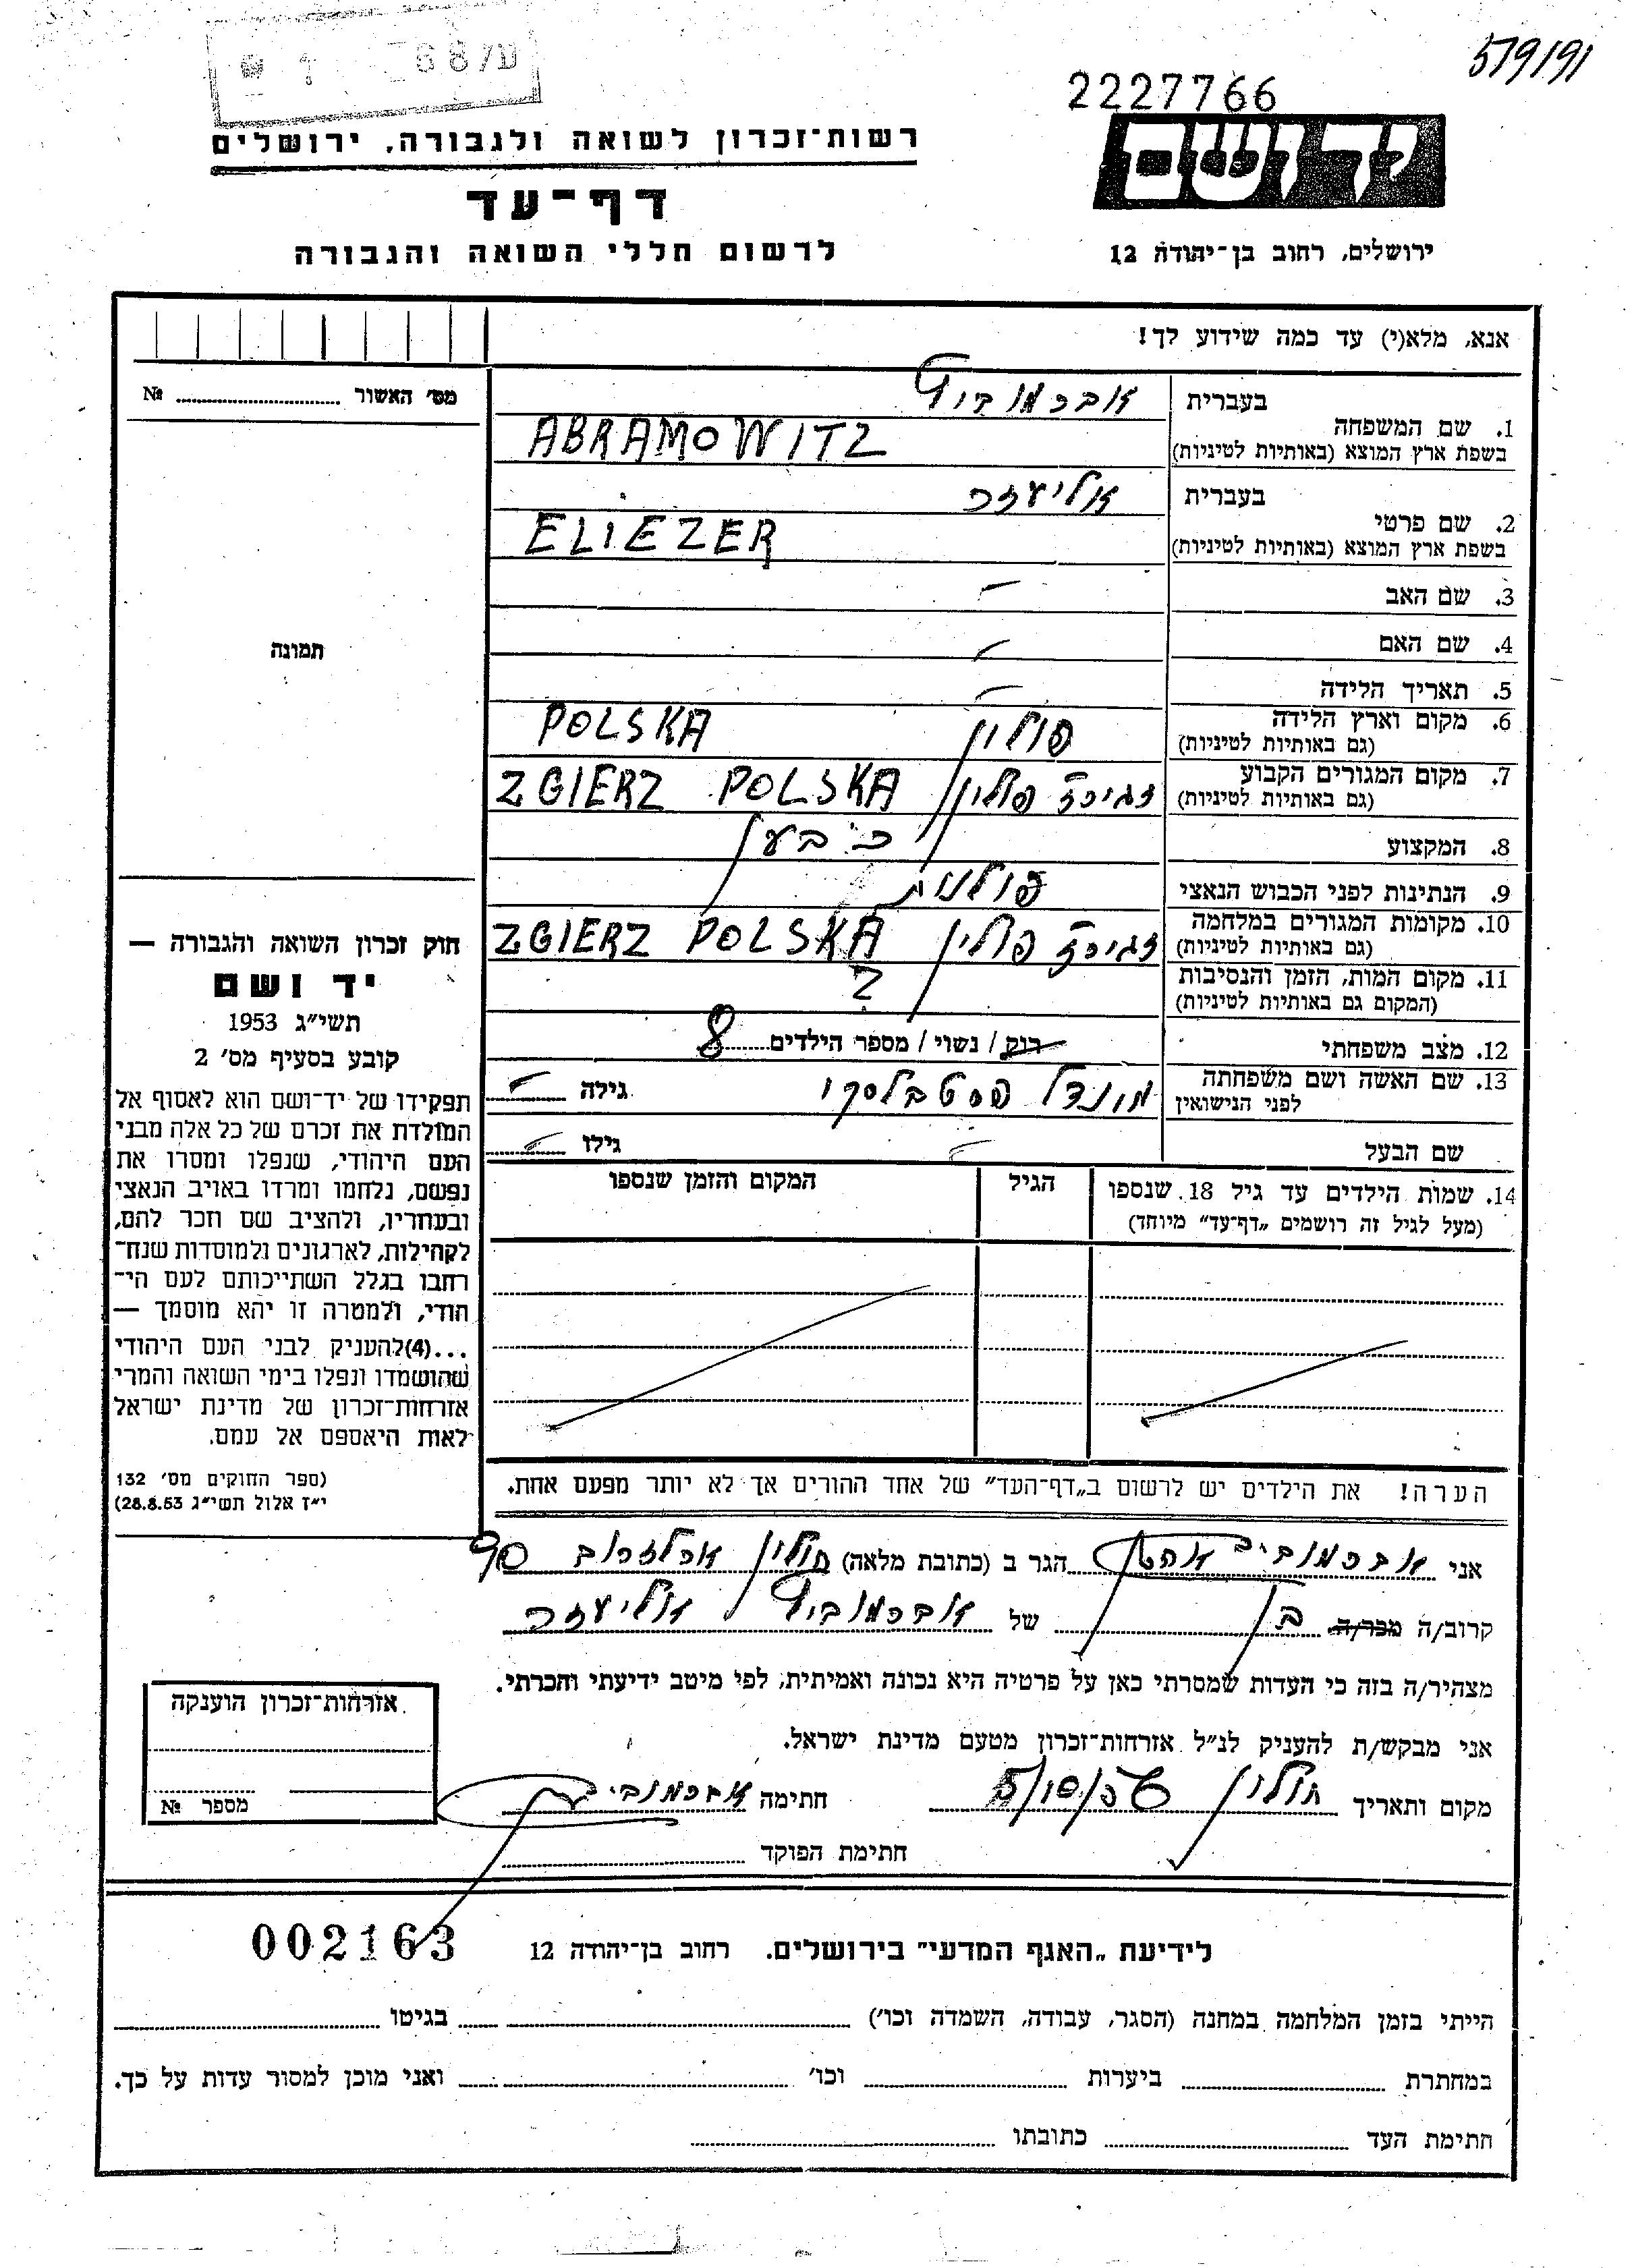 579/91
2227766
יד ושם
ירושלים, רחוב בן־יהודה 12
רשות־זכרון לשואה ולגבורה, ירושלים
דף־עד
לרשום חללי השואה והגבורה
אנא, מלא(י) עד כמה שידוע לך!
בעברית אברמוביץ
1. שם המשפחה
בשפת ארץ המוצא (באותיות לטיניות) ABRAMOWITZ
בעברית אליעזר
2. שם פרטי
בשפת ארץ המוצא (באותיות לטיניות) ELIEZER
3. שם האב —
4. שם האם —
5. תאריך הלידה —
6. מקום וארץ הלידה פולין POLSKA
(גם באותיות לטיניות)
7. מקום המגורים הקבוע זגירז פולין ZGIERZ POLSKA
(גם באותיות לטיניות)
8. המקצוע
9. הנתינות לפני הכבוש הנאצי פולנית
10. מקומות המגורים במלחמה זגירז פולין ZGIERZ POLSKA
(גם באותיות לטיניות)
11. מקום המות, הזמן והנסיבות ?
(המקום גם באותיות לטיניות)
12. מצב משפחתי רוק / נשוי / מספר הילדים 8
13. שם האשה ושם משפחתה
לפני הנישואין מינדל גילה —
שם הבעל — גילו —
14. שמות הילדים עד גיל 18 שנספו הגיל המקום והזמן שנספו
(מעל לגיל זה רושמים „דף־עד" מיוחד)
הערה! את הילדים יש לרשום ב„דף־העד" של אחד ההורים אך לא יותר מפעם אחת.
מס' האשור №
תמונה
חוק זכרון השואה והגבורה —
יד ושם
תשי"ג 1953
קובע בסעיף מס' 2
תפקידו של יד־ושם הוא לאסוף אל
המולדת את זכרם של כל אלה מבני
העם היהודי, שנפלו ומסרו את
נפשם, נלחמו ומרדו באויב הנאצי
ובעוזריו, ולהציב שם וזכר להם,
לקהילות, לארגונים ולמוסדות שנח־
רחבו בגלל השתייכותם לעם הי־
הודי, ולמטרה זו יהא מוסמך —
...(4)להעניק לבני העם היהודי
שהושמדו ונפלו בימי השואה והמרי
אזרחות־זכרון של מדינת ישראל
לאות היאספם אל עמם.
(ספר החוקים מס' 132
י"ז אלול תשי"ג 28.8.53)
אני אברמוביץ אהרן הגר ב (כתובת מלאה) חולון ארלוזרוב 90
קרוב/ה מכר/ה בן של אברמוביץ אליעזר
מצהיר/ה בזה כי העדות שמסרתי כאן על פרטיה היא נכונה ואמיתית, לפי מיטב ידיעתי והכרתי.
אני מבקש/ת להעניק לנ"ל אזרחות־זכרון מטעם מדינת ישראל.
מקום ותאריך חולון 5/10/56 חתימה אברמוביץ
חתימת הפוקד
אזרחות־זכרון הוענקה
מספר №
002163
לידיעת „האגף המדעי" בירושלים. רחוב בן־יהודה 12
הייתי בזמן המלחמה במחנה (הסגר, עבודה, השמדה וכו') בגיטו
במחתרת ביערות וכו' ואני מוכן למסור עדות על כך.
חתימת העד כתובתו